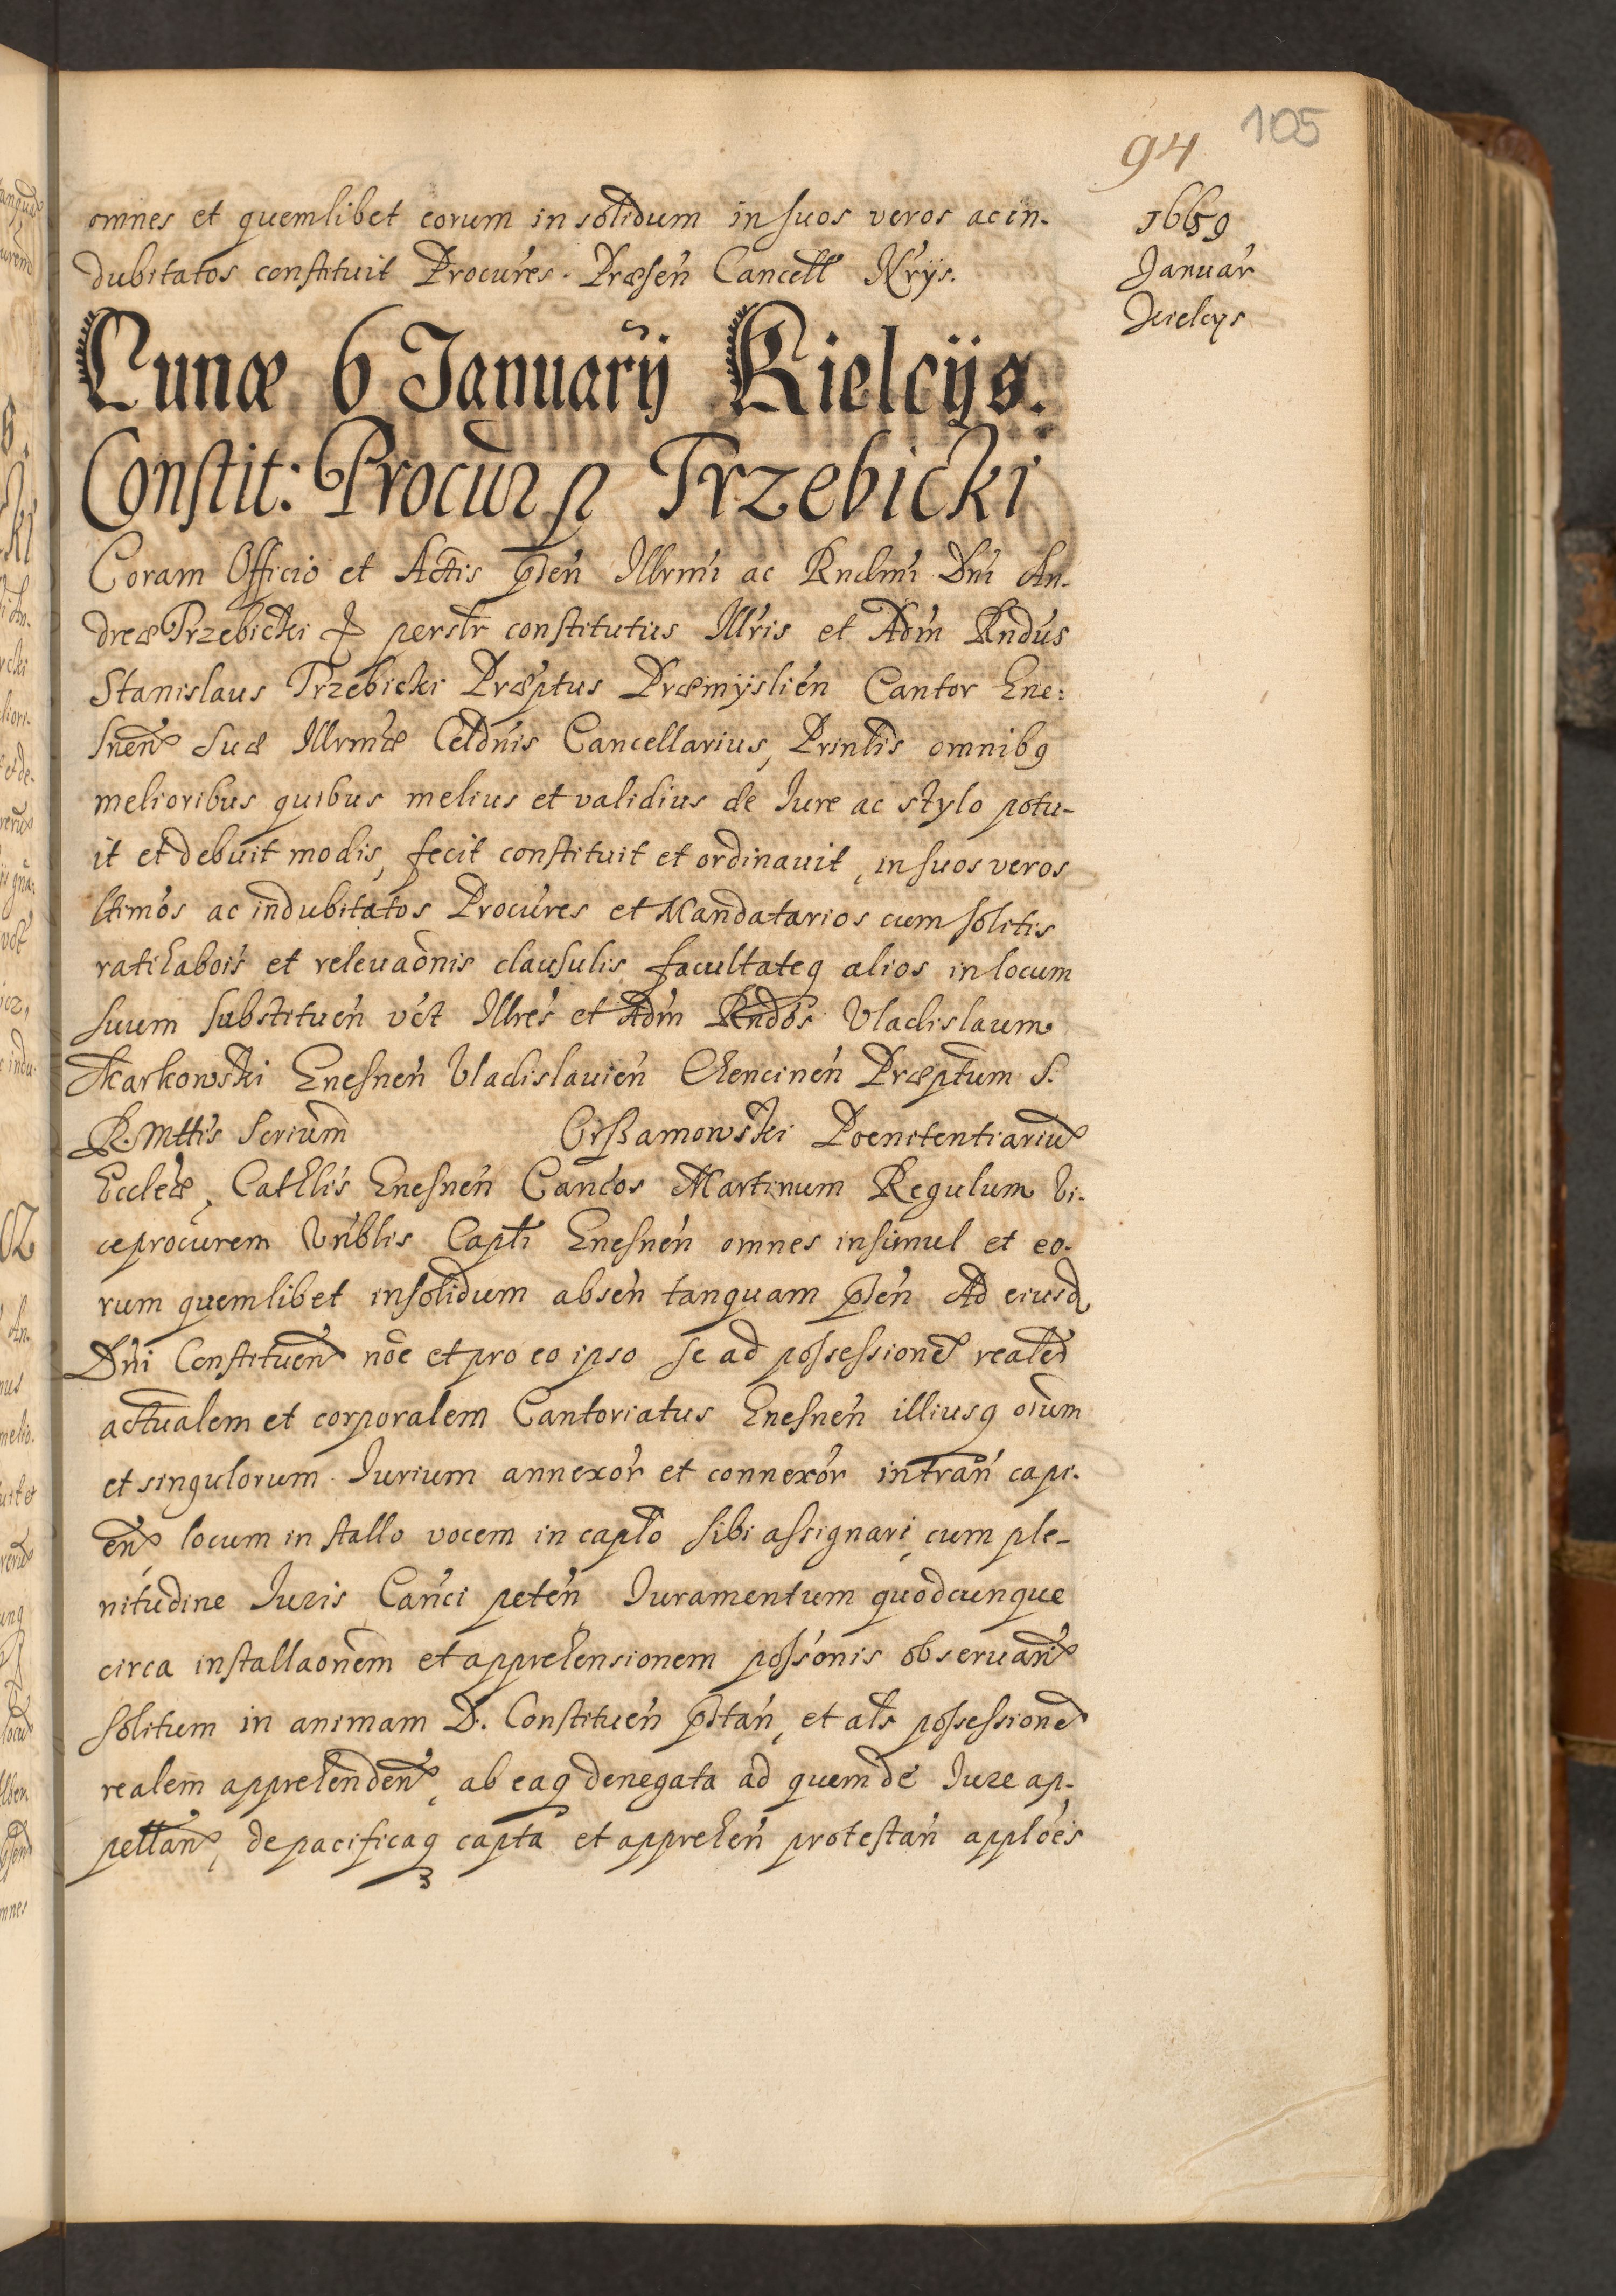 105
94
1669
Januar̃
Kielcys
omnes et quemlibet eorum in solidum in suos veros ac in-
dubitatos constituit Procu'res. Præsen̄ Cancell Nrÿs.
Lunæ 6 Januarÿ Kielcÿs.
Constit: Procur̄ p Trzebicki
Coram Officio et Actis pñ̄ Illrm'i ac Rndm'i Dn'i An-
dreæ Trzebicki & persłr constitutus Illr'is et Adm' Rnd'us
Stanislaus Trzebicki Præp'tus Præmÿslien' Cantor Gne:
snen' Suæ Illrm'æ Celdn'is Cancellarius, Prinl'is omnibq
melioribus quibus melius et validius de Iure ac stylo potu-
it et debuit modis, fecit constituit et ordinavit, in suos veros
ltimo's ac indubitatos Procu'res et Mandatarios cum solitis
ratihabois' et relevaōnis clausulis facultateq alios in locum
suum substituen' vc't Illres' et Adm' Rndo's Vladislaum
Skarkowski Gnesnen' Vladislavien' Chencinen' Præp'tum S.
R. Mttis Scrium̄
Orszamowski Poenitentiariu'
Eccle'æ, Cathl'is Gnesnen' Canc'os Martinum Regulum Vi-
ceprocu'rem Vn'blis Capli' Gnesnen' omnes insimul et eo-
rum quemlibet in solidum absen' tanquam pñ̄ Ad eiusd
Dn'i Constituen' nōe et pro eo ipso se ad possessione' reale'
actualem et corporalem Cantoriatus Gnesnen' illiusq oīum
et singulorum Iurium annexor' et connexor' intran' capi-
en' locum in stallo vocem in caplo' sibi assignari, cum ple-
nitudine Iuris Can'ci peten' Iuramentum quodcunque
circa installaōnem et apprehensionem posso'nis observari'
solitum in animam D. Constituen' pstan', et als possessione'
realem apprehenden', ab eaq denegata ad quem de Iure ap-
pellan', de pacificaq capta et apprehen' protestan' applōes